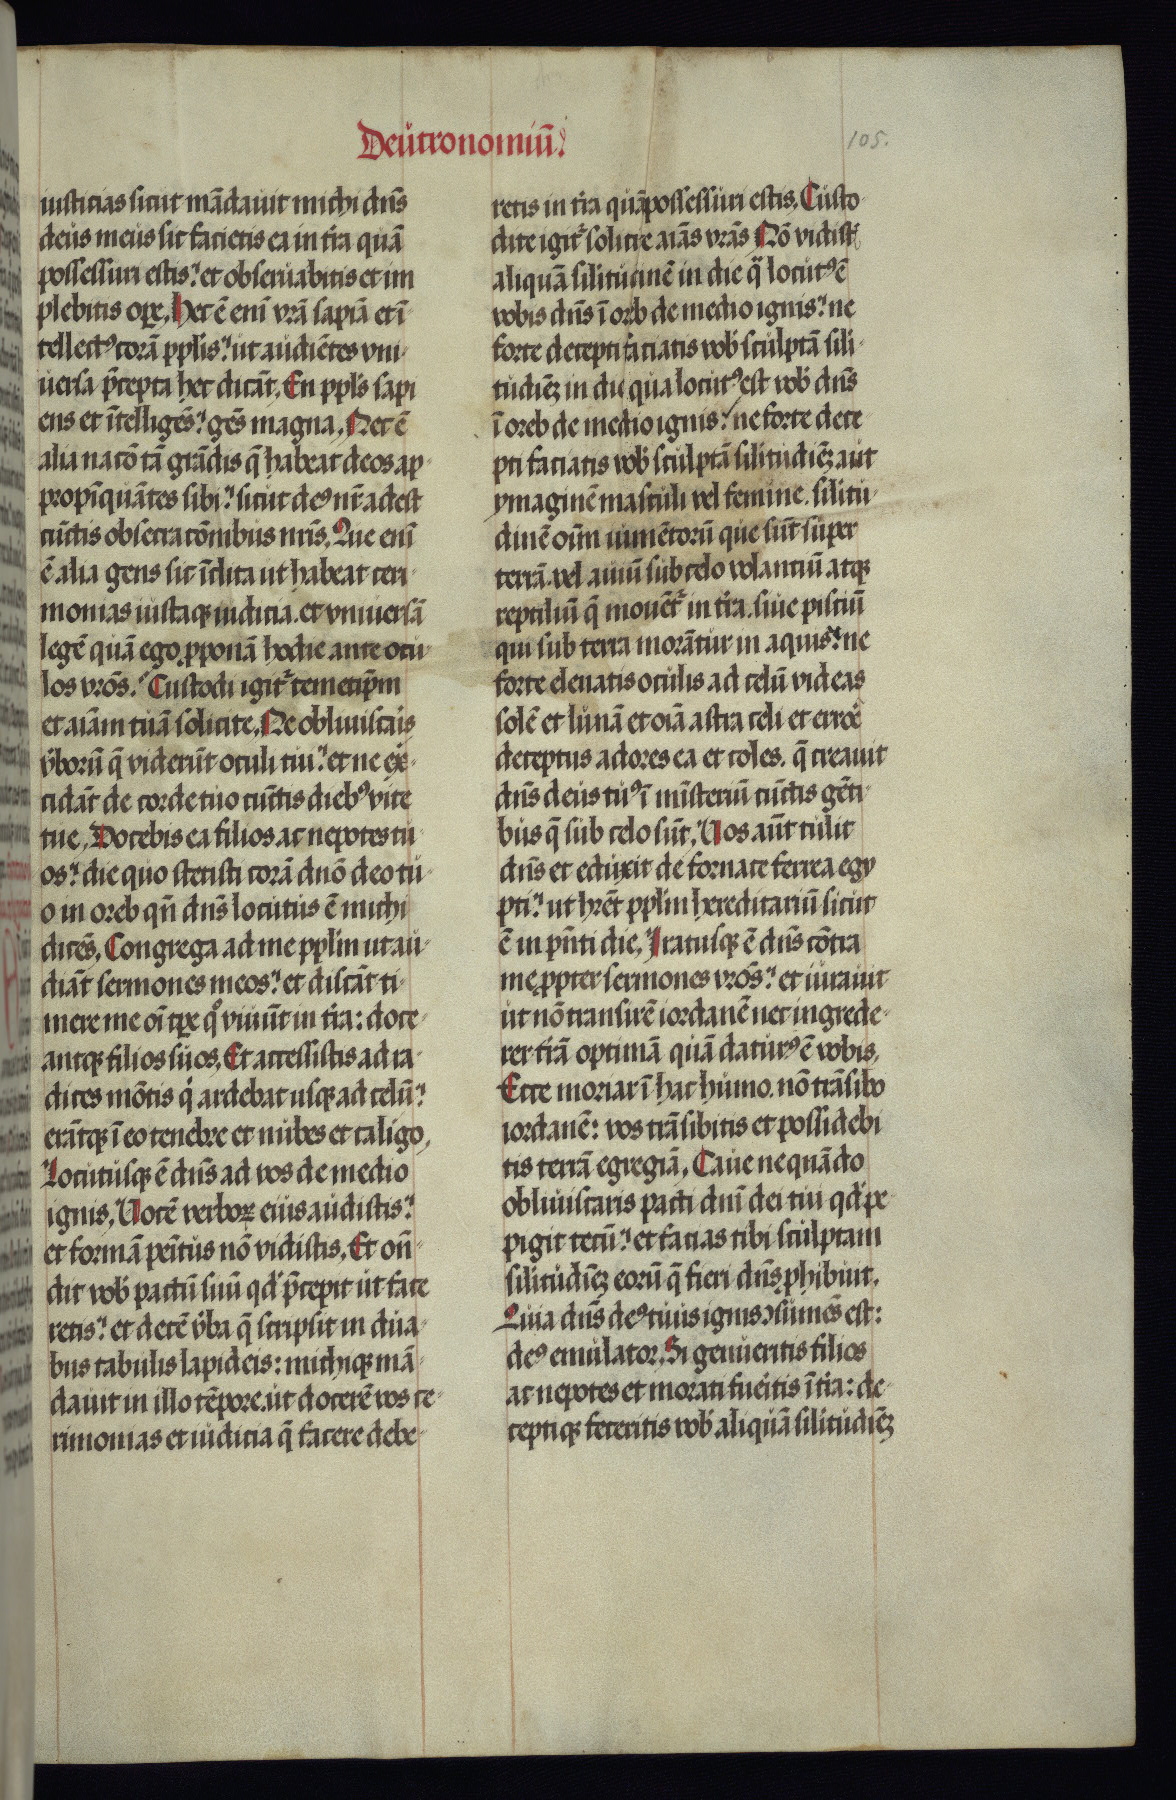 Deutronomiū
105.
iusticias sicut mādauit michi dn̄s
deus meus sic facietis ea in t̄ra quā
possessuri estis? et obseruabitis et im
plebitis oꝑe, hec ē enī vr̄a sapīa et ī
tellectꝰ corā pplis? ut audiētes vni-
uersa p̄cepta hec dicāt, En ppl̄s sapi
ens et ītelligēs? gēs magna, Nec ē
alia nacō tā grādis q̄ habeat deos ap-
propīquātes sibi? sicut deꝰ nr̄ adest
cūctis obsecracōnibus nr̄is, Que enī
ē alia gens sic īclita ut habeat ceri-
monias iustaqꝫ iudicia. et vniuersā
legē quā ego ꝓponā hodie ante ocu-
los vr̄os, Custodi igit᷑ temetip̄m
et aīam tuā solicite, Ne obliuiscar̕s
v̕borū q̄ viderūt oculi tui? et ne ex-
cidāt de corde tuo cūctis diebꝰ vite
tue, Docebis ea filios ac nepotes tu-
os? die quo stetisti corā dn̄o deo tu-
o in oreb qn̄ dn̄s locutus ē michi
dicēs, Congrega ad me pplm̄ ut au-
diāt sermones meos? et discāt ti-
mere me oī tꝑe qͦ viuūt in t̄ra: doce-
antqꝫ filios suos, Et accessistis ad ra-
dices mōtis qͥ ardebat usqꝫ ad celū?
erātqꝫ ī eo tenebre et nubes et caligo,
Locutusqꝫ ē dn̄s ad vos de medio
ignis, Vocē verboꝝ eius audistis?
et formā penīt̄us nō vidistis, Et on̄-
dit vob̕ pactū suū qd̕ p̄cepit ut face
retis? et decē v̕ba q̄ scripsit in dua-
bus tabulis lapideis: michiqꝫ mā-
dauit in illo tēpore. ut docerē vos ce-
rimonias et iudicia q̄ facere debe-
retis in t̄ra quā possessuri estis, Custo-
dite igit᷑ solicite aīas vr̄as Nō vidist̕
aliquā sil̕itudinē in die qͣ locutꝰ ē
vobis dn̄s ī oreb de medio ignis? ne
forte decepti faciatis vob̕ sculptā sili-
tudiēꝫ in die qua locutꝰ est vob̕ dn̄s
ī oreb de medio ignis? ne forte dece
pti faciatis vob̕ sculptā silitudiēꝫ aut
ymaginē masculi vel femine. silitu-
dinē oīm iumētorū que sūt super
terrā. vel auiū sub celo volantiū atqꝫ
reptiliū q̄ mouēt᷑ in t̄ra. siue pisciū
qui sub terra morātur in aquis? ne
forte eleuatis oculis ad celū videas
solē et lunā et oīa astra celi et errōe
deceptus adores ea et coles. q̄ creauit
dn̄s deus tuꝰ ī mīsteriū cūctis gēti-
bus q̄ sub celo sūt, Vos aūt tulit
dn̄s et eduxit de fornace ferrea egy
pti? ut hr̄et pplm̄ hereditariū sicut
ē in p̄nti die, Iratusqꝫ ē dn̄s cōtra
me ꝓpter sermones vr̄os? et iurauit
ut nō transirē iordanē nec ingrede-
rer t̄rā optimā quā daturꝰ ē vobis,
Ecce moriar ī hac humo. nō trāsibo
iordanē: vos trāsibitis et possidebi
tis terrā egregiā, Caue ne quādo
obliuiscaris pacti dnī dei tui qd̕ pe-
pigit tecū? et facias tibi sculptam
silitudiēꝫ eorū q̄ fieri dn̄s ꝓhibuit,
Quia dn̄s deꝰ tuus ignis ↄsumēs est:
deꝰ emulator, Si genueritis filios
ac nepotes et morati fuēitis ī t̄ra: de-
ceptiqꝫ feceritis vob̕ aliquā silitudiēꝫ